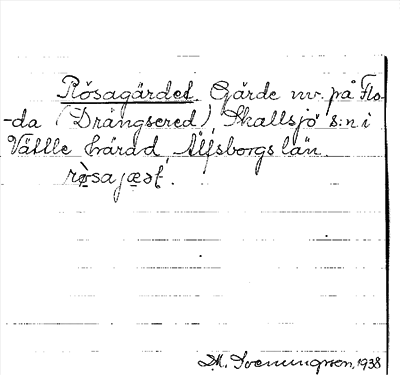 Rösagärdet. Gärde nv. på Flo-
-da (Drängsered), Skallsjö s:n i
Vättle härad, Älfsborgs län.
rø̀sajæət.
M. Svenungson, 1938